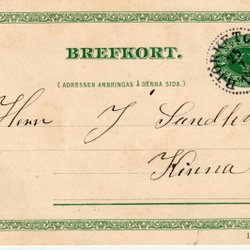 BREFKORT.
(ADRESSEN ANBRINGAS Å DENNA SIDA.)
Herr J Sandh
Kinna